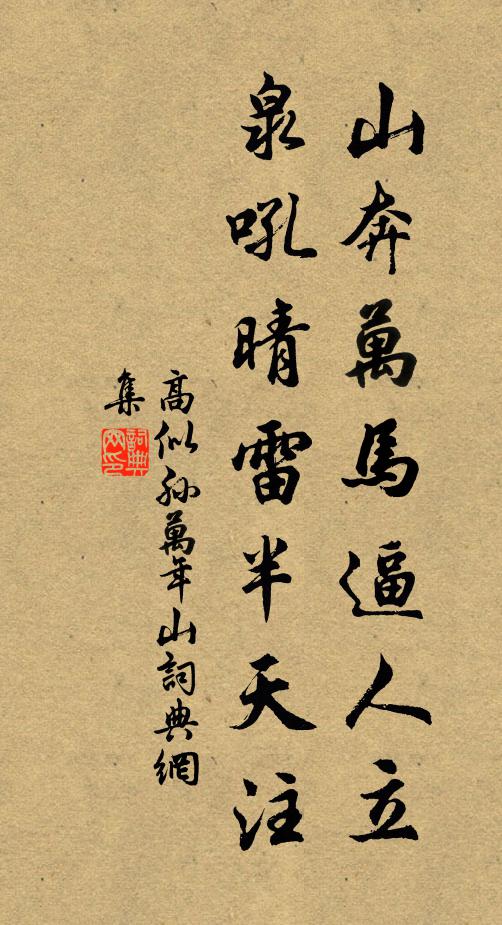 山奔萬馬逼人立
泉吼晴雷半天注
高似孙萬年山詞典網
集
詞典網印